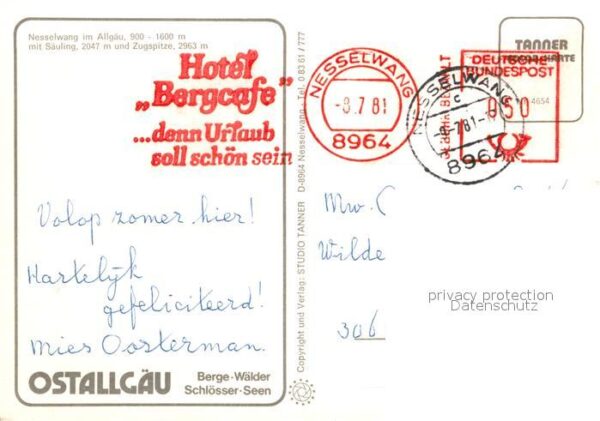 Nesselwang im Allgäu, 900 - 1600 m
mit Säuling, 2047 m und Zugspitze, 2963 m
Hotel
„Bergcafe”
...denn Urlaub
soll schön sein
NESSELWANG
-8.7.81
8964
NESSELWANG
c
-8.-7.81-
8964
TANNER
KARTE
DEUTSCHE
BUNDESPOST
050
4654
Volop zomer hier!
Hartelijk
gefeliciteerd!
Mies Oosterman.
OSTALLGÄU
Berge-Wälder
Schlösser-Seen
Copyright und Verlag: STUDIO TANNER D-8964 Nesselwang - Tel. 0 83 61 / 777
Mw.
Wilde
306
privacy protection
Datenschutz